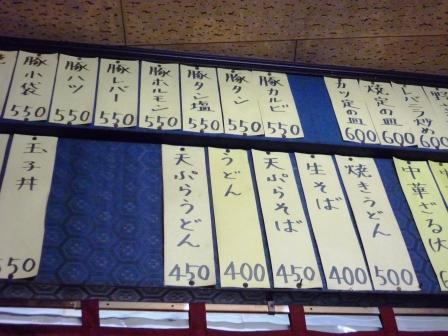 豚小袋
550
豚ハツ
550
豚レバー
550
豚ホルモン
550
豚タン塩
550
豚タン
550
豚カルビ
550
カツ定の皿
600
焼定の皿
600
レバニラ炒め
600
玉子丼
550
天ぷらうどん
450
うどん
400
天ぷらそば
450
生そば
400
焼きうどん
500
中華ざる(大